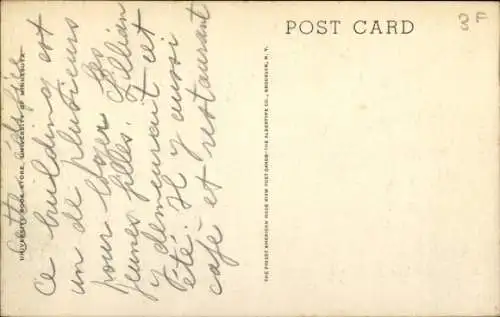 POST CARD
3F
ce building est
un de plusieurs
pour loger les
jeunes filles. Lillian
y demeurait cet
été. Il y aussi
café et restaurant
UNIVERSITY BOOK STORE, UNIVERSITY OF MINNESOTA
THE FINEST AMERICAN MADE VIEW POST CARDS—THE ALBERTYPE CO., BROOKLYN, N. Y.